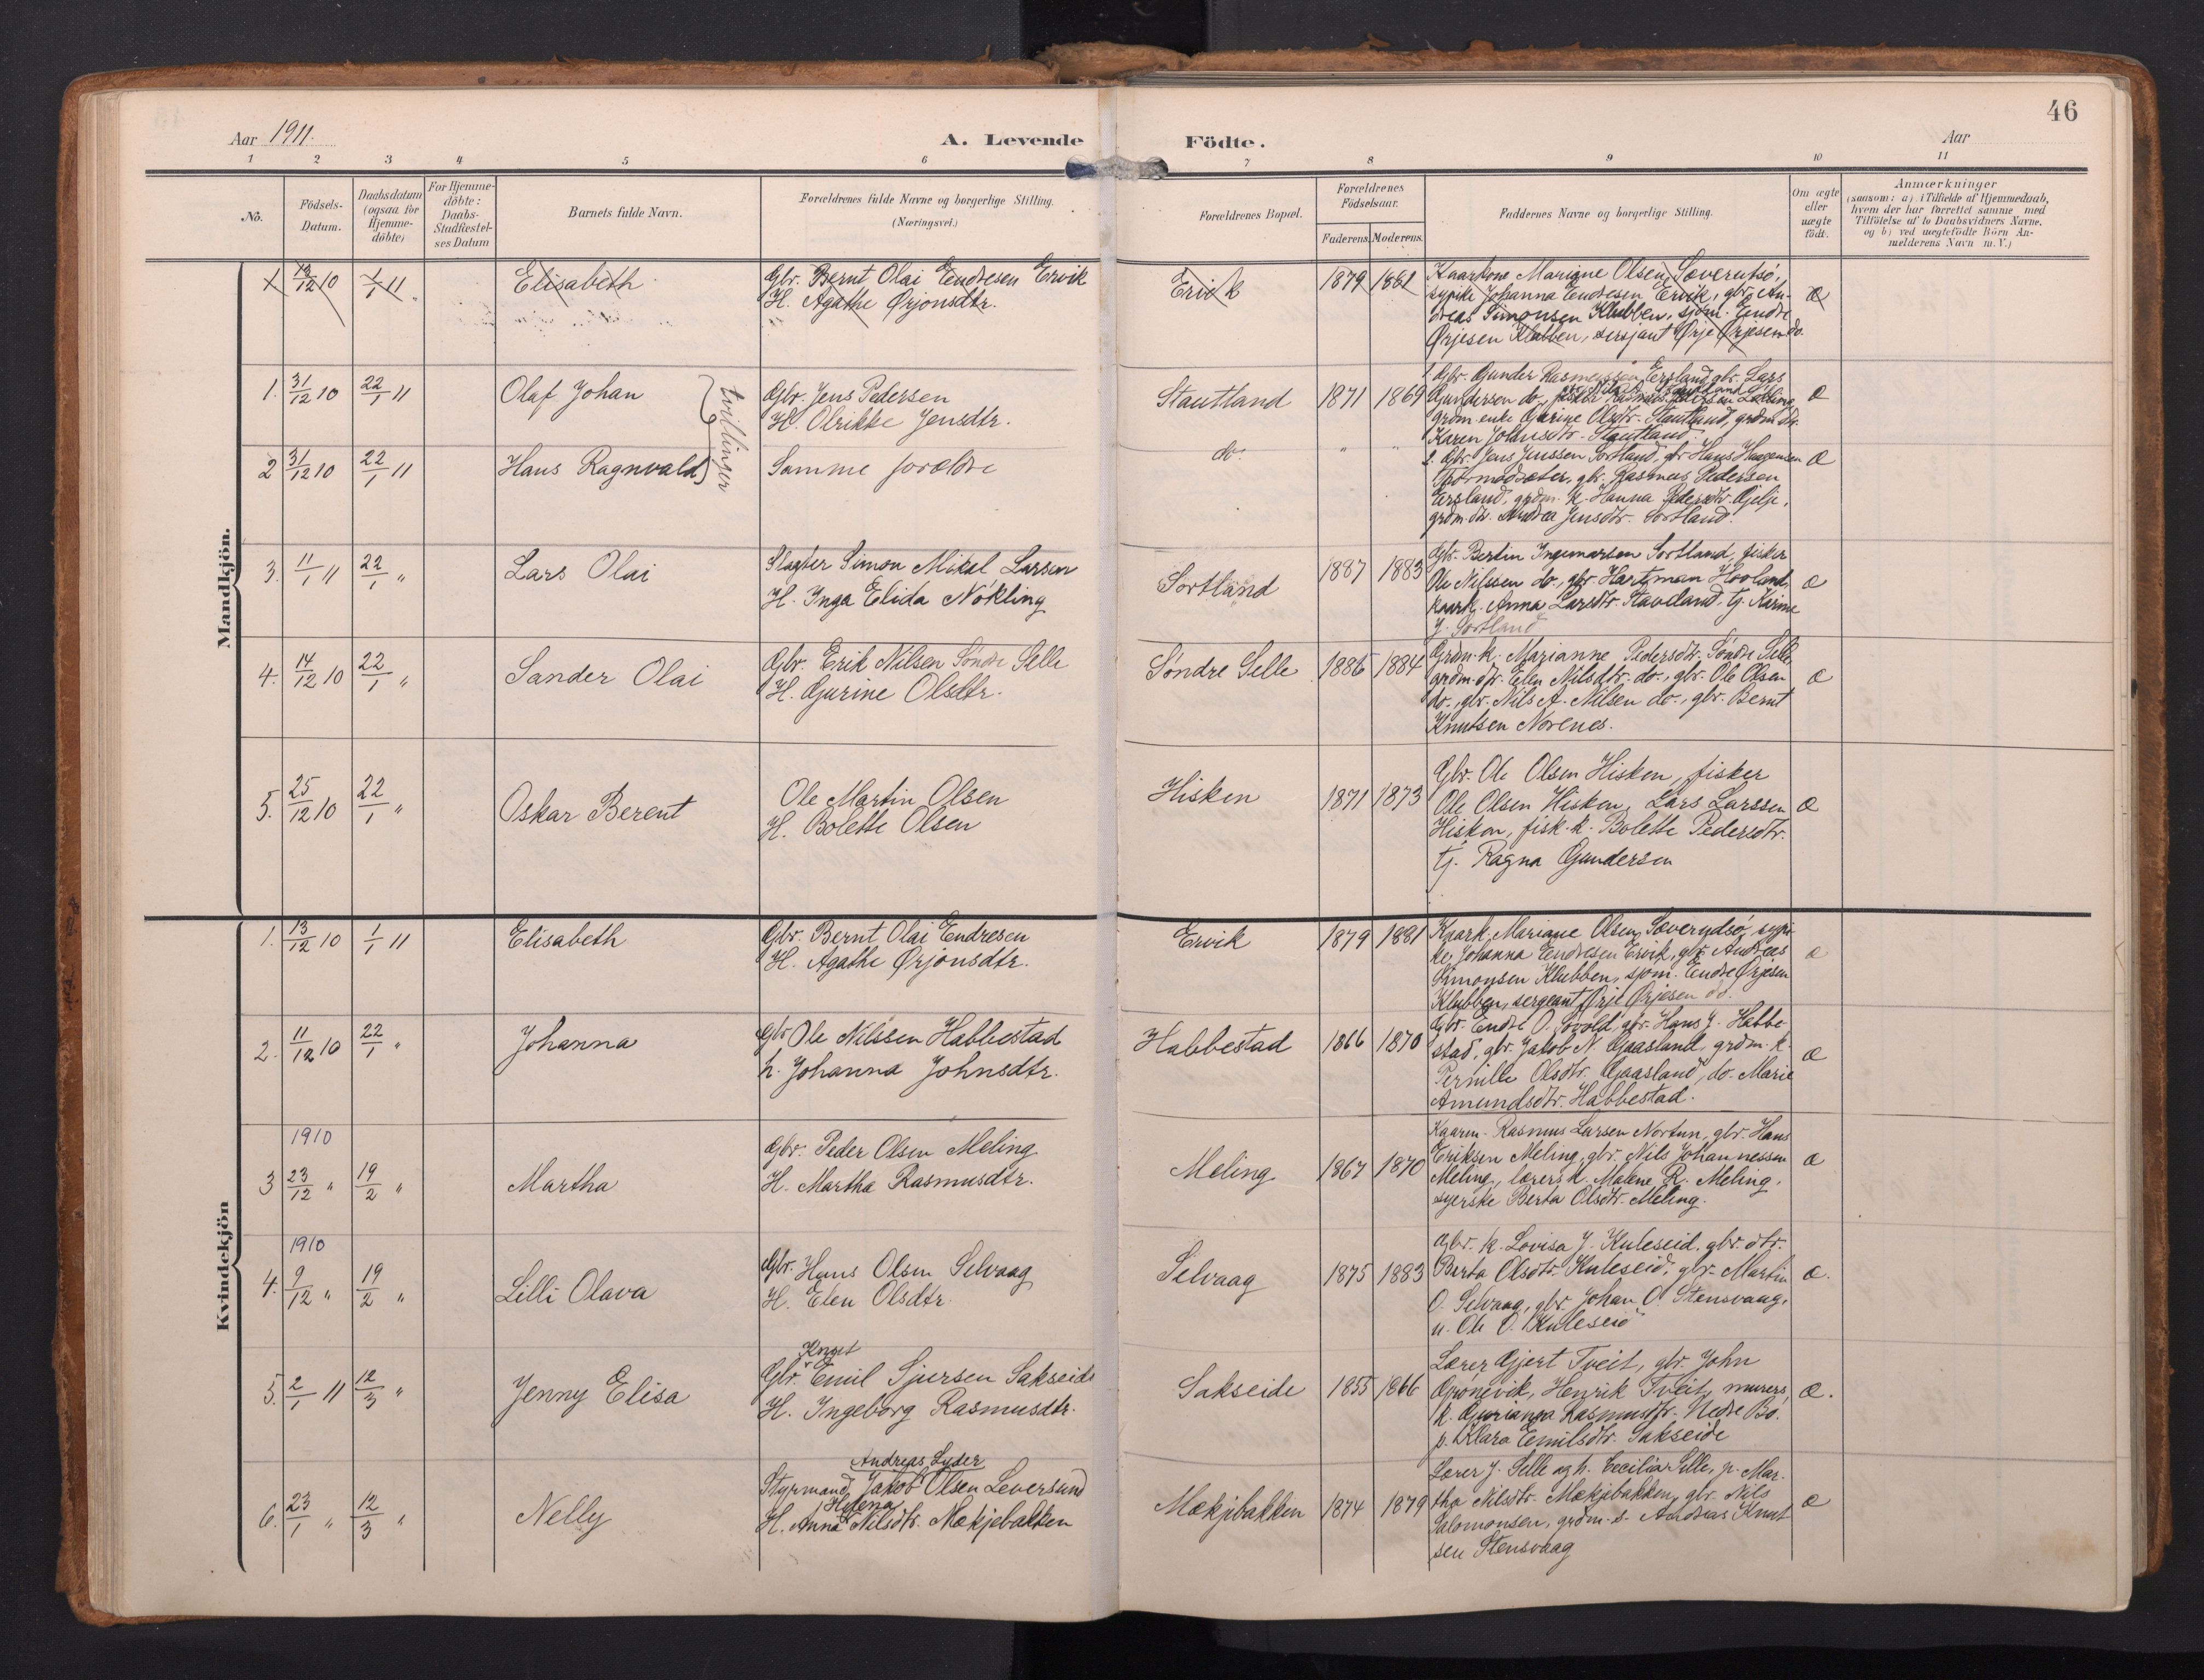 46
Aar 1911.
A. Levende Födte.
Aar
1 2 3 4 5 6 7 8 9 10 11
No.
Födsels-
Datum.
Daabsdatum
(ogsaa for
Hjemme-
döbte)
For Hjemme-
döbte:
Daabs-
Stadfæstel-
ses Datum
Barnets fulde Navn.
Forældrenes fulde Navne og borgerlige Stilling.
(Næringsvei.)
Forældrenes Bopæl.
Forældrenes
Födselsaar.
Faderens. Moderens.
Faddernes Navne og borgerlige Stilling.
Om ægte
eller
uægte
födt.
Anmærkninger
(saasom: a) i Tilfælde af Hjemmedaab,
hvem der har forrettet samme med
Tilföielse af to Daabsvidners Navne,
og b) ved uægtefödte Börn An-
melderens Navn m. V.)
Mandkjön.
1 13/12 10 1/1 11 Elisabeth
Gbr. Bernt Olai Endresen Ervik
H. Agathe Ørjonsdtr.
Ervik 1879 1881
Kaarkone Marianne Olsen,
sypike Johanna Endresen Ervik, gbr. An-
dreas Simonsen Klubben, sjøm. Endre
Ørjesen Klubben, sersjant Ørje Ørjesen do.
æ
1. 31/12 10 22/1 11 Olaf Johan
tvillinger
Gbr. Jens Pedersen
H. Olrikke Jensdtr.
Stautland 1871 1869
1. Gbr. Gunder Rasmussen Ersland, gbr. Lars
Gundersen do.,
grdm. enke Olsdtr. Stautland, grdm. dtr.
Karen Johnsdtr. Stautland.
æ
2 31/12 10 22/1 11 Hans Ragnvald
Samme forældre
do. " "
2. Gbr. Jens Jenssen Sortland, gbr Hans Haagensen
Tormodsæter, gbr. Rasmus Pedersen
Ersland, grdm. k. Hanna Pedersdtr. Gjelp,
grdm. dtr. Andrea Jensdtr. Sortland.
æ
3. 11/1 11 22/1 " Lars Olai
Slagter Simon Mikal Larsen
H. Inga Elida Nökling
Sortland 1887 1883
Gbr. Bertin Ingemarsen Sortland, fisker
Ole Nilssen do., gbr Hartman Hovland,
kaark. Anna Larsdtr. Stavland. tj. Karine
J. Sortland
æ
4. 14/12 10 22/1 " Sander Olai
Gbr. Erik Nilsen Söndre Selle
H. Gurine Olsdtr.
Söndre Selle 1886 1884
Grdm. k. Marianne Pedersdtr. Söndre Selle
grdm. dtr. Elen Nilsdtr. do., gbr. Ole Olsen
do., gbr. Nils A. Nilsen do., gbr. Bernt
Knutsen Norenes.
æ
5. 25/12 10 22/1 " Oskar Berent
Ole Martin Olsen
H. Bolette Olsen
Hisken 1871 1873
Gbr. Ole Olsen Hisken, fisker
Ole Olsen Hisken, Lars Larssen
Hisken, fisk. k. Bolette Pedersdtr.
tj. Ragna Gundersen
æ
Kvindekjön
1. 13/12 10 1/1 11 Elisabeth
Gbr. Bernt Olai Endresen
H. Agathe Ørjonsdtr.
Ervik 1879 1881
Kaark. Marianne Olsen, sypi-
ke Johanna Endresen Ervik, gbr Andreas
Simonsen Klubben, sjom. Endre Ørjesen
Klubben, sergeant Ørje Ørjesen do.
æ
2. 11/12 10 22/1 " Johanna
Gbr Ole Nilssen Habbestad
h. Johanna Johnsdtr.
Habbestad 1866 1870
Gbr. Endre O. Lovold, gbr. Hans J. Habbe-
stad, gbr. Jakob N. Gaasland, grdm. k.
Pernille Olsdtr. Gaasland, do. Marie
Amundsdtr. Habbestad.
æ
1910
3 23/12 " 19/2 " Martha
Gbr. Peder Olsen Meling
H. Martha Rasmusdtr.
Meling 1867 1870
Kaarm. Rasmus Larsen Nortun, gbr. Hans
Eriksen Meling, gbr. Nils Johannessen
Meling, lærers k. Malene R. Meling,
syerske Berta Olsdtr. Meling.
æ
1910
4. 9/12 " 19/2 " Lilli Olava
Gbr. Hans Olsen Selvaag
H. Elen Olsdtr.
Selvaag 1875 1883
Gbr. k. Lovisa J. Kuleseid, gbr. dtr.
Berta Olsdtr. Kuleseid, gbr. Martin
O. Selvaag, gbr. Johan O. Stensvaag,
u. Ole O. Kuleseid
æ.
5. 2/1 11 12/3 " Jenny Elisa
Knut
Gbr. Emil Sjursen Sakseide
H. Ingeborg Rasmusdtr.
Sakseide 1855 1866
Lærer Gjert Tveit, gbr. John
Grönevik, Henrik Tveit, murers
k. Gurianna Rasmusdtr. Nedre Bø.
p. Klara Emilsdtr. Sakseide
æ.
6. 23/1 " 12/3 " Nelly
Andreas Lyder
Styrmand Jakob Olsen Leversund
Helena
H. Anna Nilsdtr. Mækjebakken
Mækjebakken 1874 1879
Lærer J. Selle og h. Cecilia Selle, p. Mar-
tha Nilsdtr. Mækjebakken, gbr. Nils
Salomonsen, grdm. s. Andreas Knut-
sen Stensvaag
æ